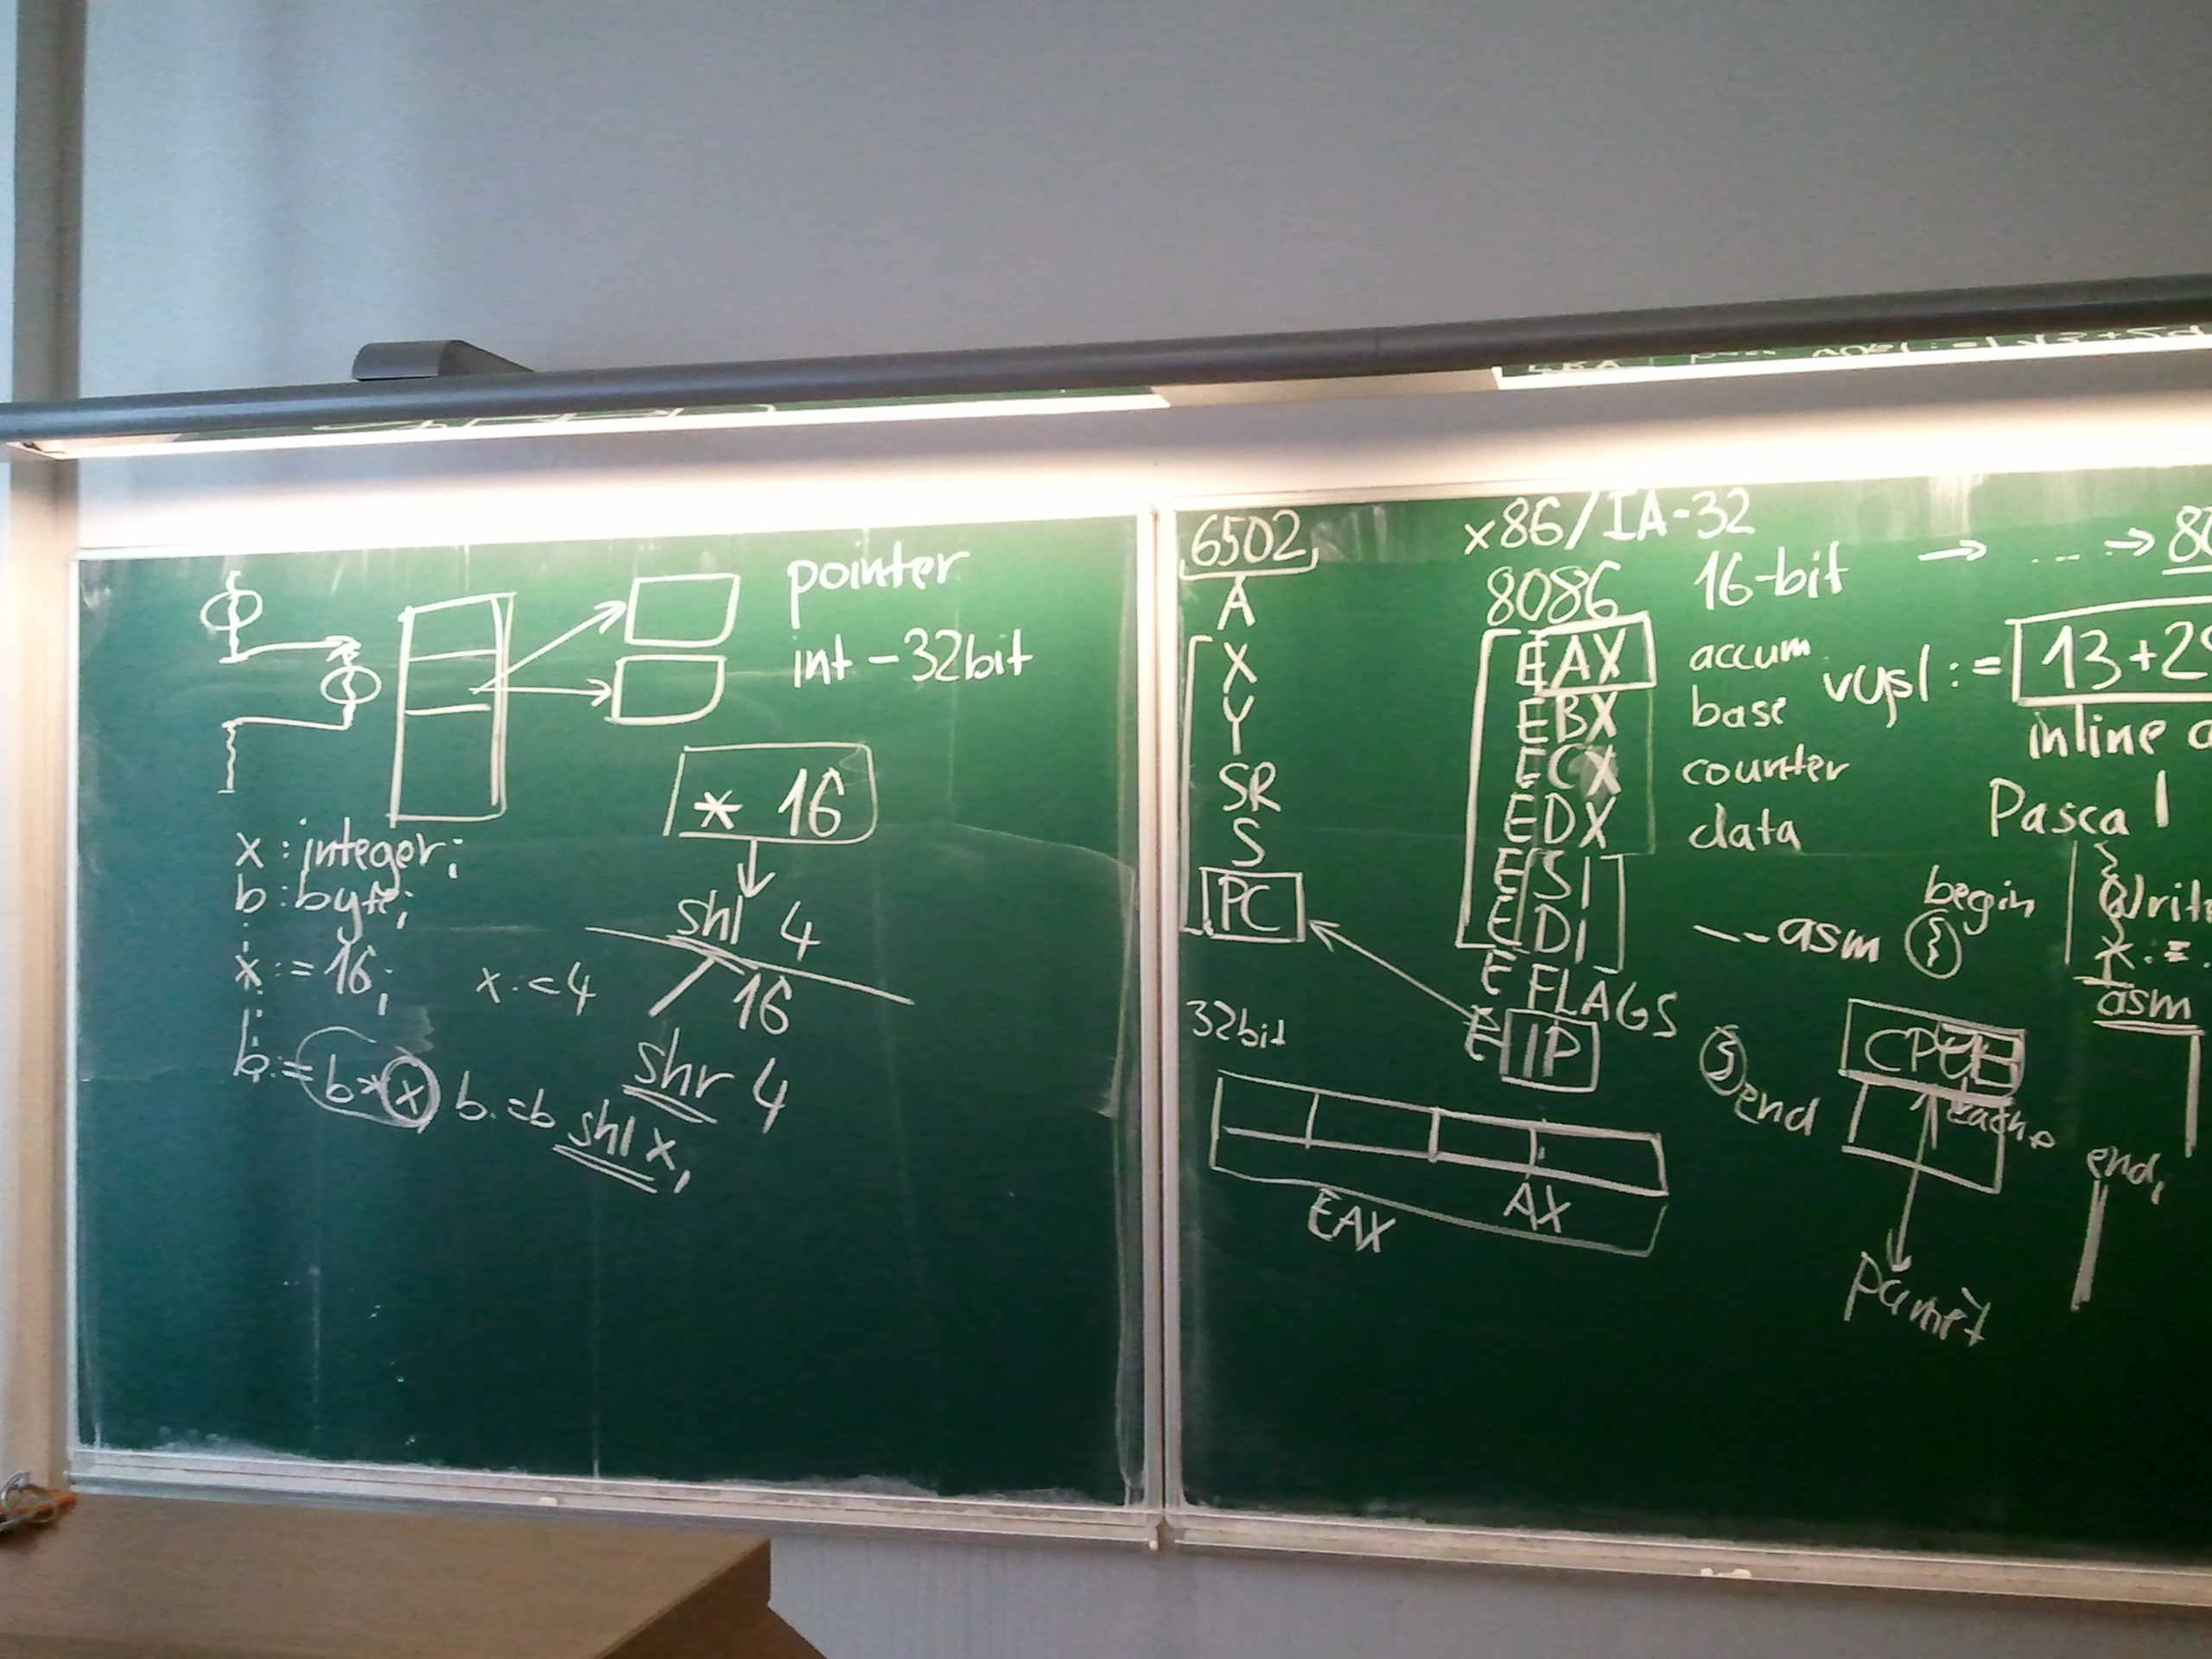 pointer
int - 32bit
* 16
x : integer;
b : byte;
shl 4
x := 16;
x := 4
16
b := b * x
b := b shl x,
shr 4
6502
A
X
Y
SR
S
PC
x86/IA-32
8086
16-bit → ... →
EAX accum
EBX base
ECX counter
EDX data
ESI
EDI
E FLAGS
EIP
vysl := 13+2
inline
Pascal
--- asm begin
end
x :=
asm
end,
CPU
cache
paměť
32bit
EAX
AX